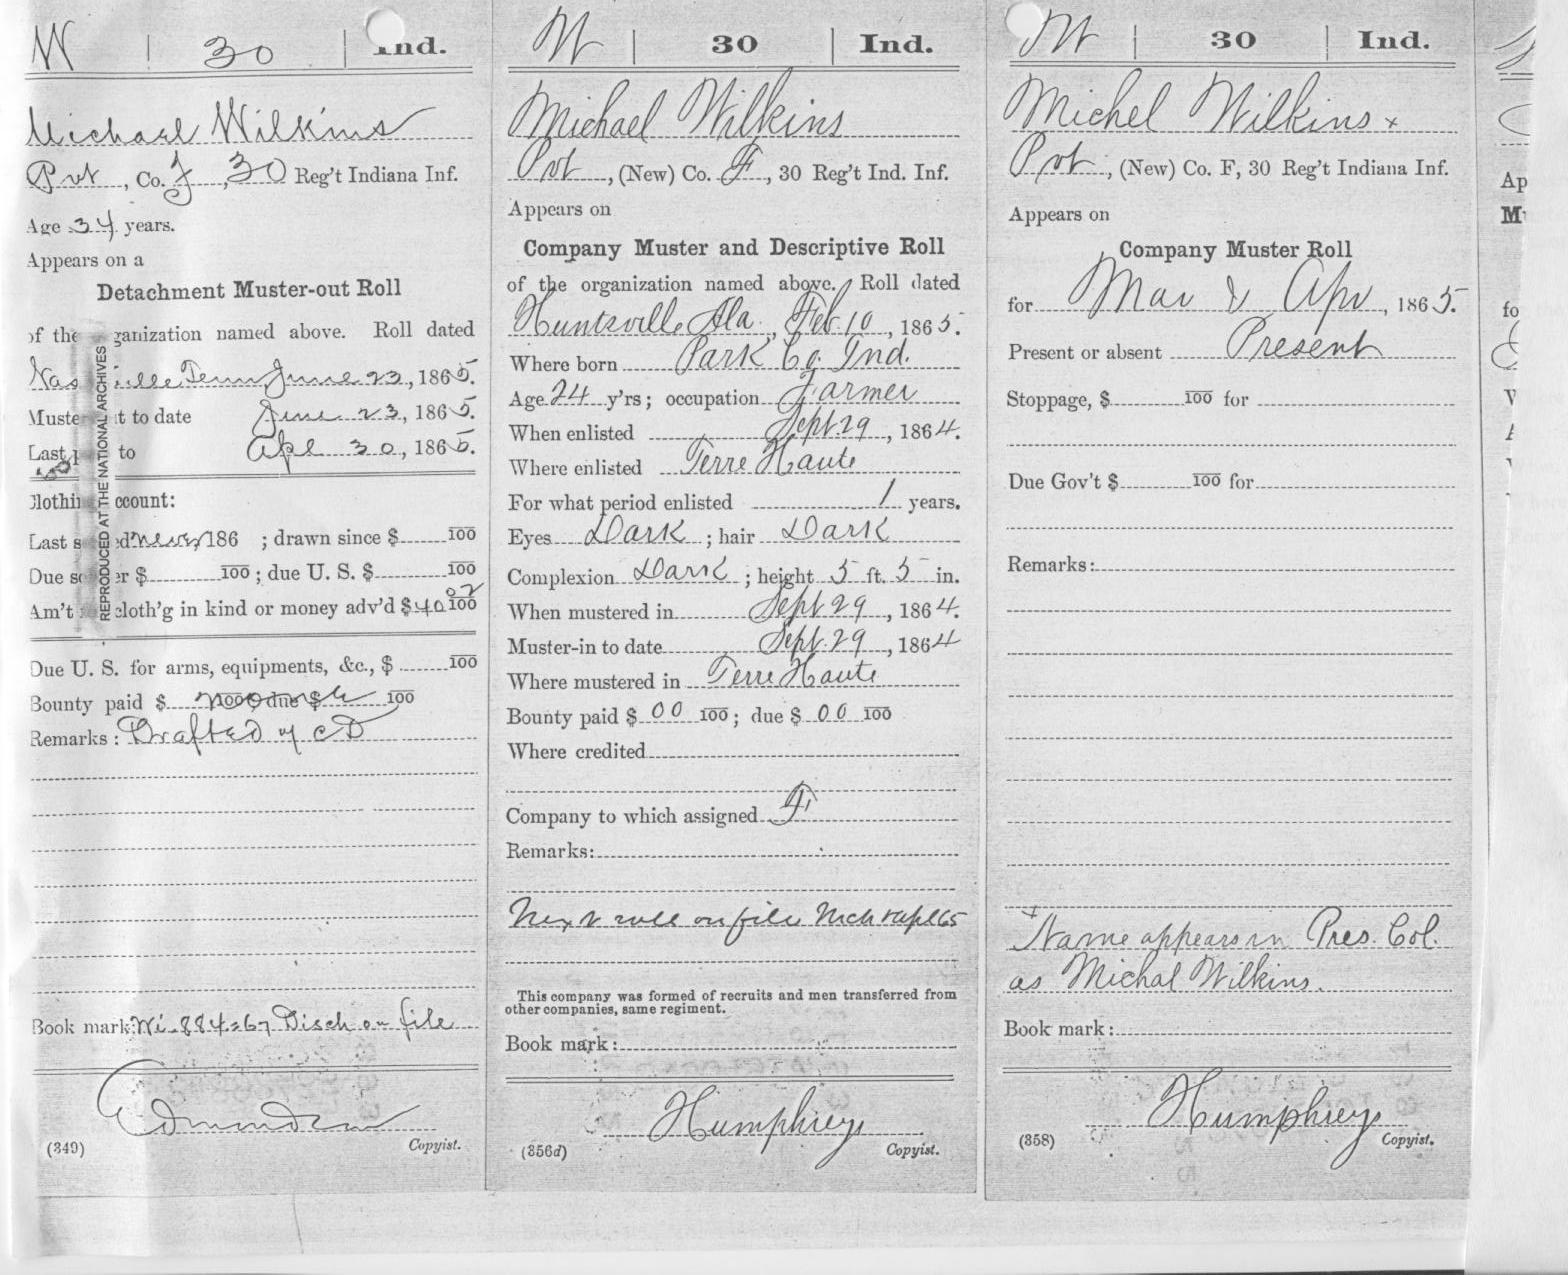 W | 30 | Ind.
Michael Wilkins
Pvt, Co. F, 30 Reg't Indiana Inf.
Age 34 years.
Appears on a
Detachment Muster-out Roll
of the organization named above. Roll dated
Nashville Tenn June 23, 1865.
Muster-out to date June 23, 1865.
Last paid to Apl 30, 1865.
Clothing account:
Last settled never 186 ; drawn since $ 100
Due soldier $ 100 ; due U. S. $ 100
Am't for cloth'g in kind or money adv'd $ 40 02/100
Due U. S. for arms, equipments, &c., $ 100
Bounty paid $ 100; due $ 100
Remarks: Drafted
Book mark: Disch on file
(349) Copyist.
REPRODUCED AT THE NATIONAL ARCHIVES
W | 30 | Ind.
Michael Wilkins
Pvt, (New) Co. F, 30 Reg't Ind. Inf.
Appears on
Company Muster and Descriptive Roll
of the organization named above. Roll dated
Huntsville Ala., Feb 10, 1865.
Where born Park Co. Ind.
Age 24 y'rs; occupation Farmer
When enlisted Sept 29, 1864.
Where enlisted Terre Haute
For what period enlisted 1 years.
Eyes Dark; hair Dark
Complexion Dark; height 5 ft. 5 in.
When mustered in Sept 29, 1864.
Muster-in to date Sept 29, 1864
Where mustered in Terre Haute
Bounty paid $ 00 100; due $ 00 100
Where credited
Company to which assigned F
Remarks:
Next roll on file Mch & Apl 65
This company was formed of recruits and men transferred from
other companies, same regiment.
Book mark:
Humphreys
(356d) Copyist.
W | 30 | Ind.
Michel Wilkins x
Pvt, (New) Co. F, 30 Reg't Indiana Inf.
Appears on
Company Muster Roll
for Mar & Apr, 1865.
Present or absent Present
Stoppage, $ 100 for
Due Gov't $ 100 for
Remarks:
x Name appears in Pres. Col.
as Michal Wilkins.
Book mark:
Humphreys
(358) Copyist.
Ap
fo